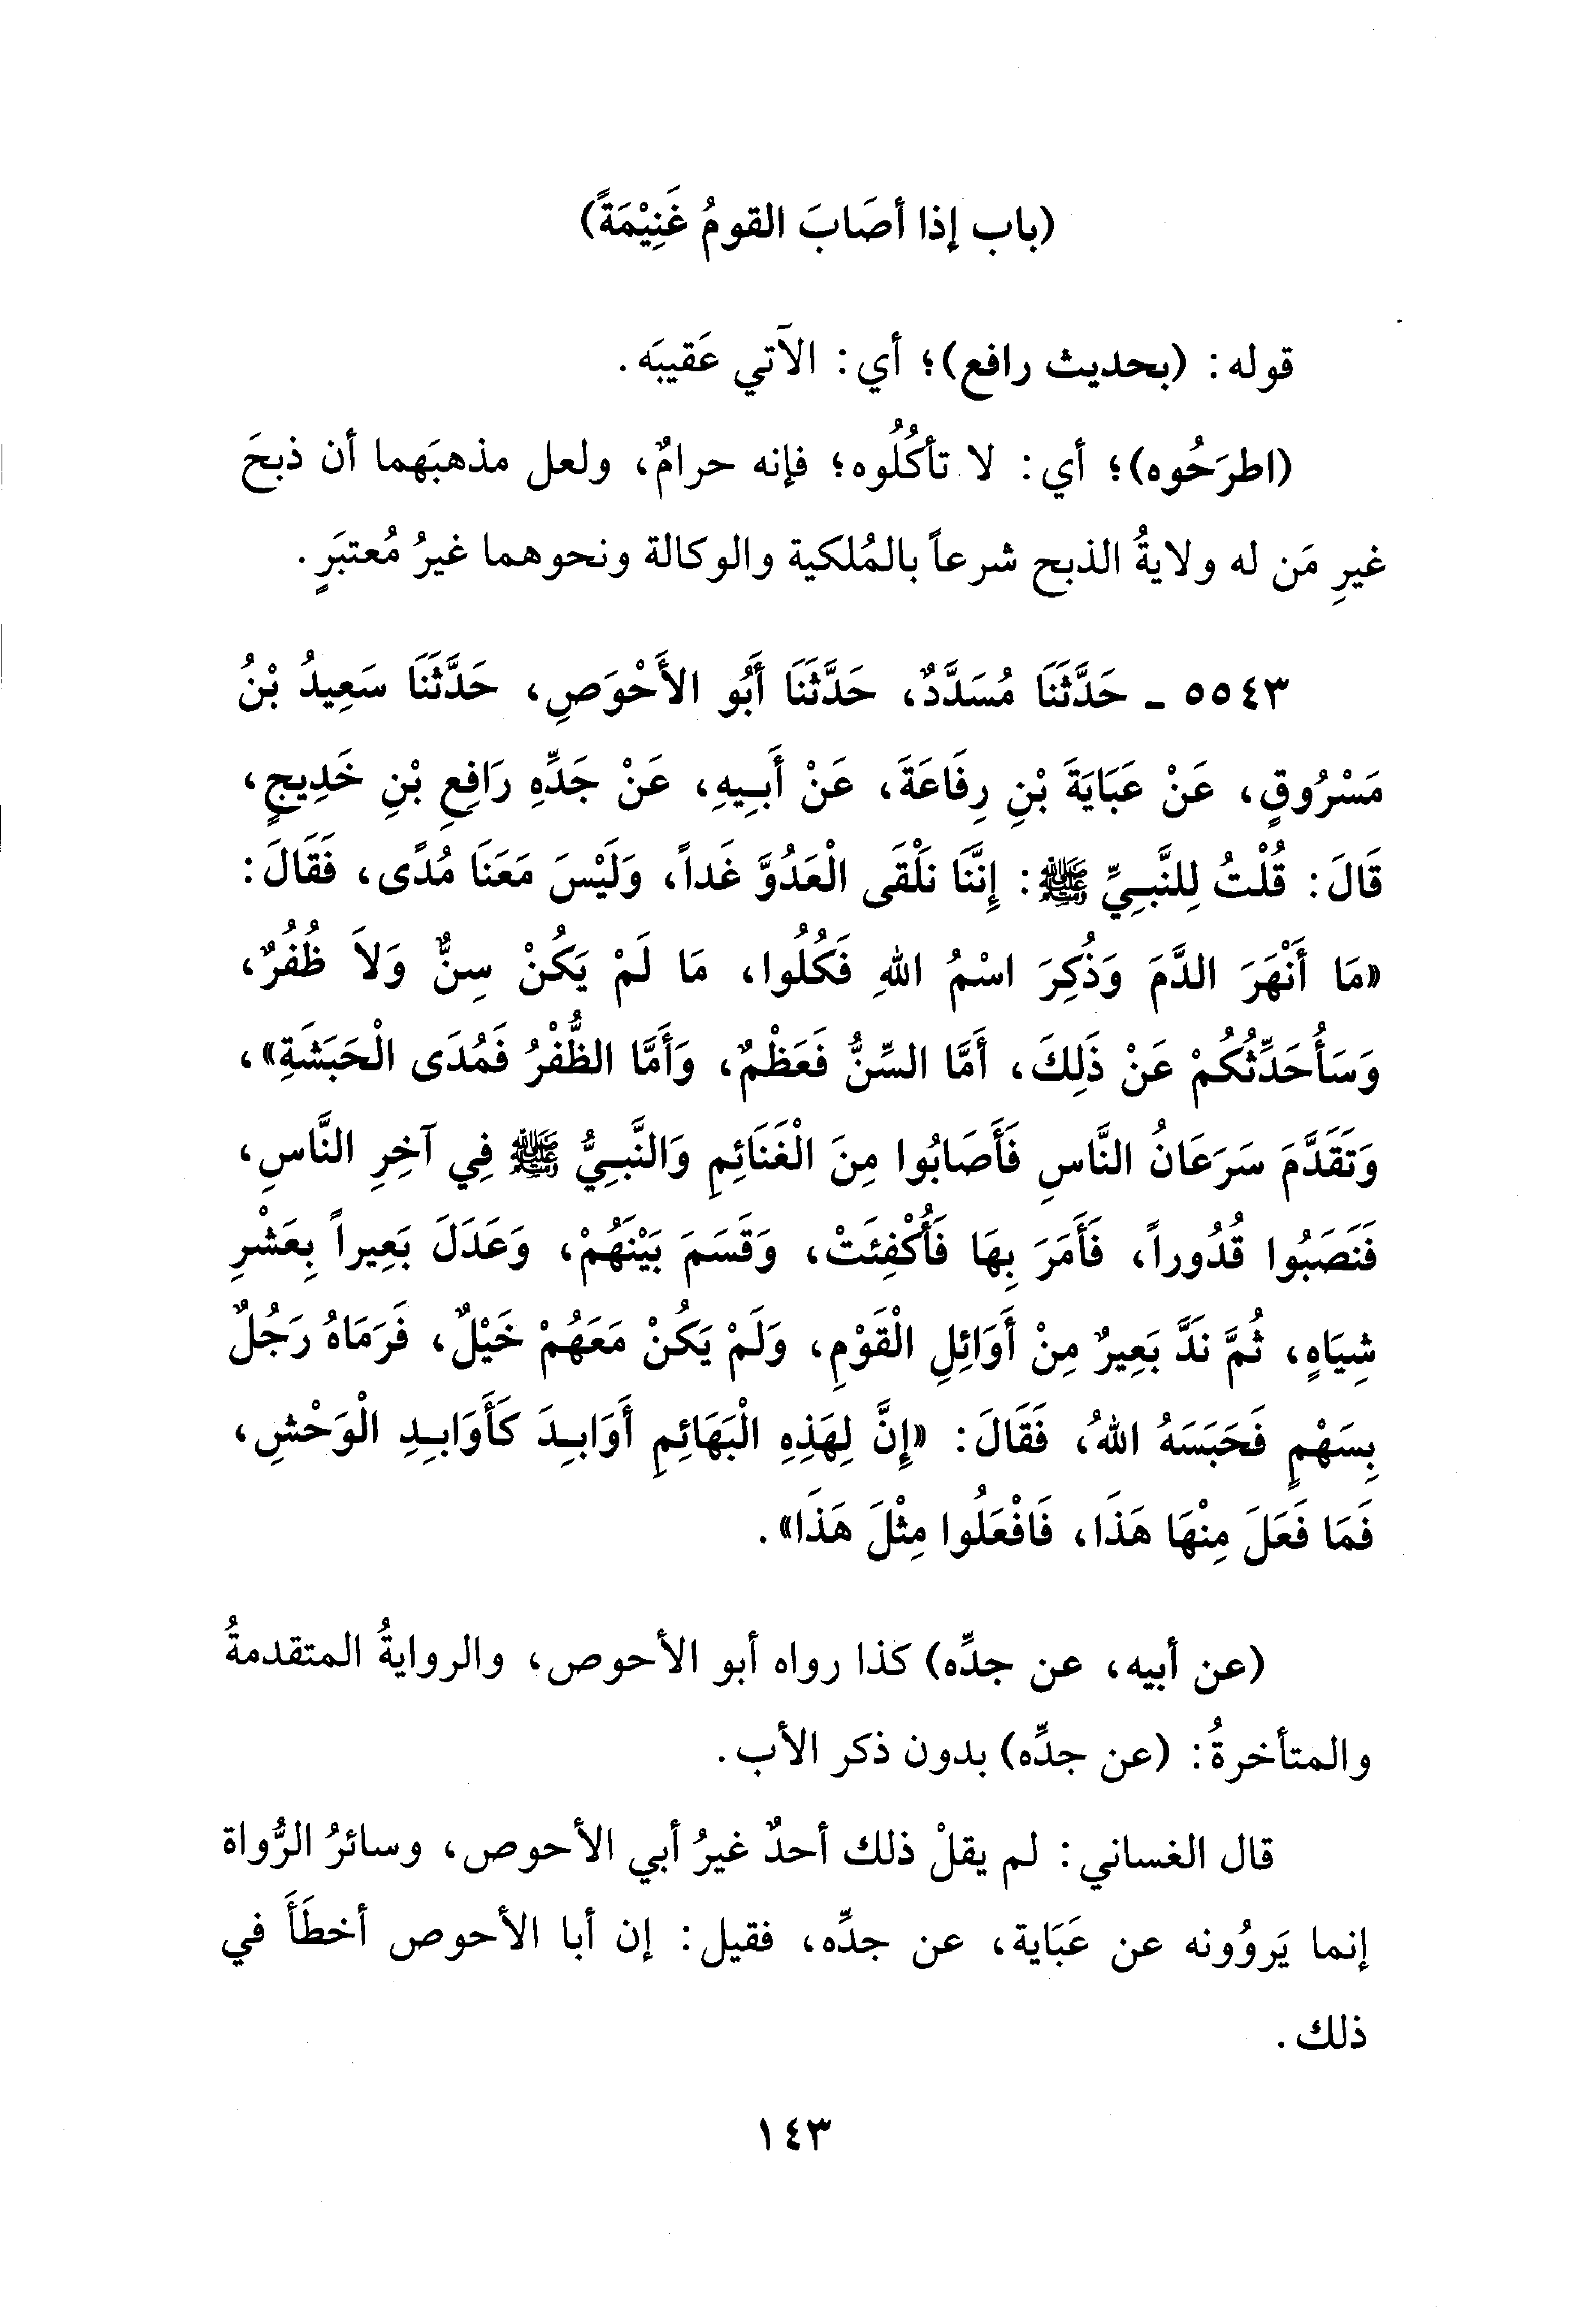 (باب إذا أصَابَ القومُ غَنِيْمَةً)
قوله: (بحديث رافع)؛ أي: الآتي عَقيبَه.
(اطرَحُوه)؛ أي: لا تأكُلُوه؛ فإنه حرامٌ، ولعل مذهبَهما أن ذبحَ
غيرِ مَن له ولايةُ الذبح شرعاً بالمُلكية والوكالة ونحوهما غيرُ مُعتبَرٍ.
٥٥٤٣ - حَدَّثَنَا مُسَدَّدٌ، حَدَّثَنَا أَبُو الأَحْوَصِ، حَدَّثَنَا سَعِيدُ بْنُ
مَسْرُوقٍ، عَنْ عَبَايَةَ بْنِ رِفَاعَةَ، عَنْ أَبِيهِ، عَنْ جَدِّهِ رَافِعِ بْنِ خَدِيجٍ،
قَالَ: قُلْتُ لِلنَّبِيِّ ﷺ: إِنَّنَا نَلْقَى الْعَدُوَّ غَداً، وَلَيْسَ مَعَنَا مُدًى، فَقَالَ:
«مَا أَنْهَرَ الدَّمَ وَذُكِرَ اسْمُ اللهِ فَكُلُوا، مَا لَمْ يَكُنْ سِنٌّ وَلاَ ظُفُرٌ،
وَسَأُحَدِّثُكُمْ عَنْ ذَلِكَ، أَمَّا السِّنُّ فَعَظْمٌ، وَأَمَّا الظُّفْرُ فَمُدَى الْحَبَشَةِ»،
وَتَقَدَّمَ سَرَعَانُ النَّاسِ فَأَصَابُوا مِنَ الْغَنَائِمِ وَالنَّبِيُّ ﷺ فِي آخِرِ النَّاسِ،
فَنَصَبُوا قُدُوراً، فَأَمَرَ بِهَا فَأُكْفِئَتْ، وَقَسَمَ بَيْنَهُمْ، وَعَدَلَ بَعِيراً بِعَشْرِ
شِيَاهٍ، ثُمَّ نَدَّ بَعِيرٌ مِنْ أَوَائِلِ الْقَوْمِ، وَلَمْ يَكُنْ مَعَهُمْ خَيْلٌ، فَرَمَاهُ رَجُلٌ
بِسَهْمٍ فَحَبَسَهُ اللهُ، فَقَالَ: «إِنَّ لِهَذِهِ الْبَهَائِمِ أَوَابِدَ كَأَوَابِدِ الْوَحْشِ،
فَمَا فَعَلَ مِنْهَا هَذَا، فَافْعَلُوا مِثْلَ هَذَا».
(عن أبيه، عن جدِّه) كذا رواه أبو الأحوص، والروايةُ المتقدمةُ
والمتأخرةُ: (عن جدِّه) بدون ذكر الأب.
قال الغساني: لم يقلْ ذلك أحدٌ غيرُ أبي الأحوص، وسائرُ الرُّواة
إنما يَروُونه عن عَبَاية، عن جدِّه، فقيل: إن أبا الأحوص أخطَأَ في
ذلك.
١٤٣